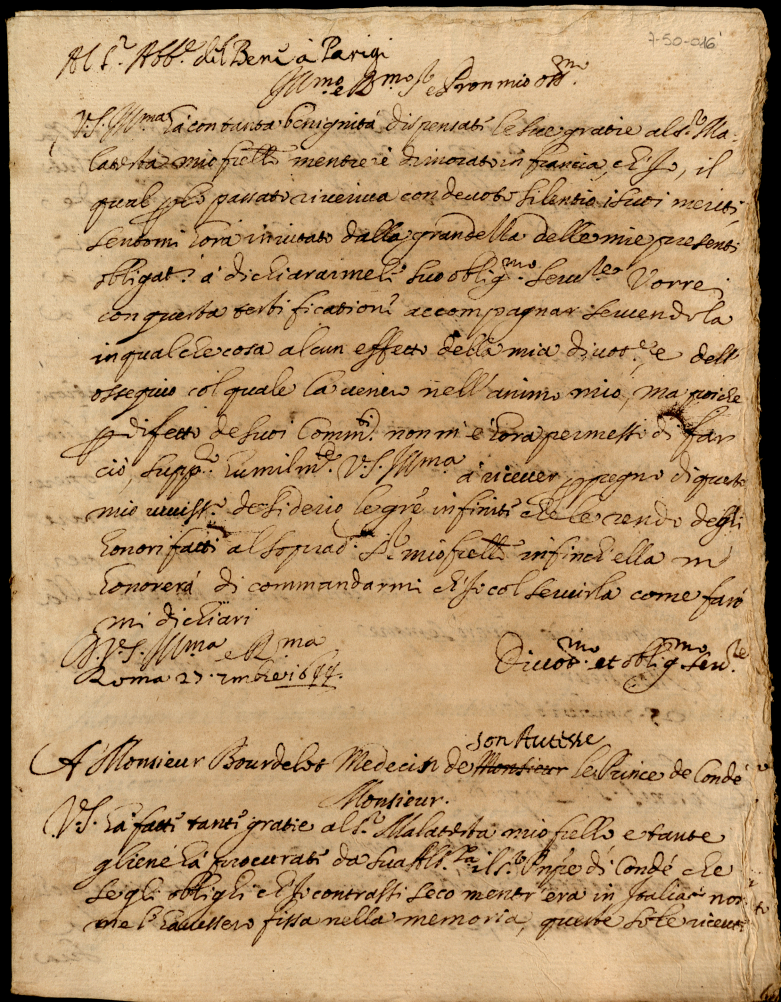 7-50-016
Al S.r Abb.e del Bene à Parigi
Ill.mo e R.mo S.r e Pron mio oss.mo
V.S. Ill.ma hà con tanta benignità dispensati le sue gratie al S.r Ma-
latesta mio frello mentre è dimorato in francia, ch'Io, il
qual p lo passato riveriva con devoto silentio i suoi meriti,
sentomi hora invitato dalla grandezza delle mie presenti
obligat.i à dichiararmeli suo oblig.mo Serv.re Vorrei
con questa testificatione accompagnar servendola
in qualche cosa alcun effetto della mia divot.ne e dell'
ossequio col quale la venero nell'animo mio, ma poiche
p difetto de suoi Comm.di non mi è hora permesso di far
ciò, supp.co humilm.te V.S. Ill.ma à ricever p pegno di questo
mio desiderio le gre infinite che le rendo degli
honori fatti al soprad.o S.r mio frello infinch'ella m
honorerà di commandarmi ch'Io col servirla come farò
mi dichiari
D. V.S. Ill.ma e R.ma
Roma 27. 7mbre 1644.
Divot.mo et oblig.mo Ser.re
A' Monsieur Bourdelot Medecin de Monsieur son Altesse le Prince de Condé
Monsieur.
V.S. hà fatti tanti gratie al S.r Malatesta mio frello e tante
gliene hà procurati da Sua Alt.za il S.r Pnpe di Condé che
se gli oblighi ch'Io contrassi seco mentr'era in Italia non
me l'havessero fissa nella memoria, queste sole